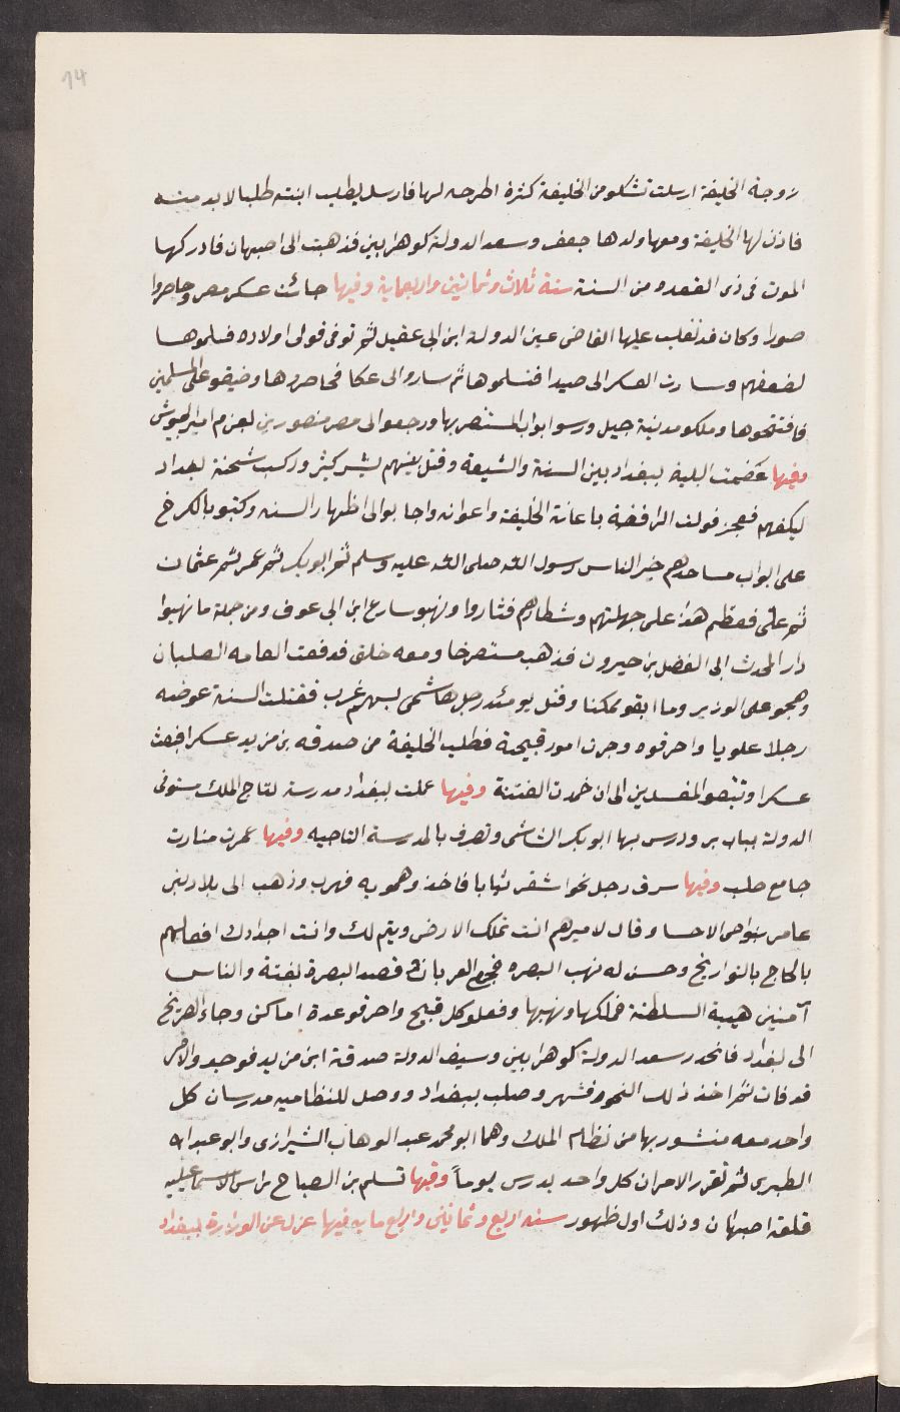 14
زوجة الخليفة ارسلت تشكو من الخليفة كثرة اطرحه لها فارسل يطلب ابنته طلبا لابد منه
فاذن لها الخليفة ومعها ولدها جعفر وسعد الدولة كوهرايين فذهبت الى اصبهان فادركها
الموت فى ذى القعده من السنة سنة ثلاث وثمانين واربعماية وفيها جائت عسكر مصر وحاصروا
صورا وكان قد تغلب عليها القاضى عين الدولة ابن ابى عقيل ثم توفى فولى اولاده فسلموها
لضعفهم وسارت العسكر الى صيدا فتسلموها ثم سارو الى عكا فحاصروها وضيقو على المسلمين
فافتتحوها وملكو مدينة جبيل ورسو ابواب المستنصر بها ورجعو الى مصر منصورين لعزم امير الجيوش
وفيها عضمت البلية ببغداد بين السنة والشيعة وقتل بينهم بشر كثير وركب شحنة بغداد
ليكفهم فعجز فولت الرافضة باعانت الخليفة واعوانه واجابو الى اظهار السنه وكتبو بالكرخ
على ابواب مساجدهم خير الناس رسول الله صلى الله عليه وسلم ثم ابو بكر ثم عمر ثم عثمان
ثم على فعظم هذا على جهلتهم وشطارهم فثاروا ونهبو سارع ابن ابى عوف ومن جملة ما نهبوا
دار المحدث ابى الفضل بن خيرون فذهب مستصرخا ومعه خلق فدفعت العامه الصلبان
وهجمو على الوزير وما ابقو ممكنا وقتل يومئذ رجل هاشمى بسهم غرب فقتلت السنة عوضه
رجلا علويا واحرقوه وجرت امور قبيحة فطلب الخليفة من صدقه بن مزيد عسكرا فبعث
عسكرا وتبعو المفسدين الى ان خمدت الفتنة وفيها عملت ببغداد مدرسة لتاج الملك مستوفى
الدولة بباب برز ودرس بها ابو بكر الشاشى وتعرف بالمدرسة التاجيه وفيها عمرت منارت
جامع حلب وفيها سرق رجل نحوا شقر ثيابا فاخذ وهمو به فهرب وذهب الى بلاد بنى
عامر بنواحى الاحسا وقال لاميرهم انت تملك الارض ويتم لك وانت اجدادك افعالهم
بالحاج بالتواريخ وحسن له نهب البصره فجمع العربان قصد البصرة بغتة والناس
آمنين هيبة السلطنة فملكها ونهبها وفعلو كل قبيح واحرقو عدة اماكن وجاء الصريخ
الى بغداد فانحدر سعد الدولة كوهرايين وسيف الدولة صدقة ابن مزيد فوجد والامر
قد فات ثم اخذ ذلك النجم فشهر وصلب ببغداد ووصل للنظاميه مدرسان كل
واحد معه منشور بها من نظام الملك وهما ابو محمد عبد الوهاب الشيرازى وابو عبد الله
الطبرى ثم تقرر الامر ان كل واحد يدرس يوماً وفيها تسلم بن الصباح راس الاسماعيليه
قلعة اصبهان وذلك اول ظهور سنه اربع وثمانين واربع مايه فيها عزل عن الوزارة ببغداد